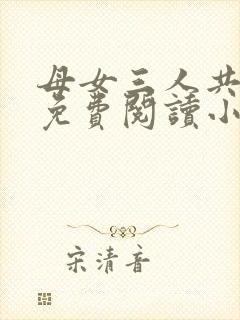 母女三人共
免費閱讀小
宋清音